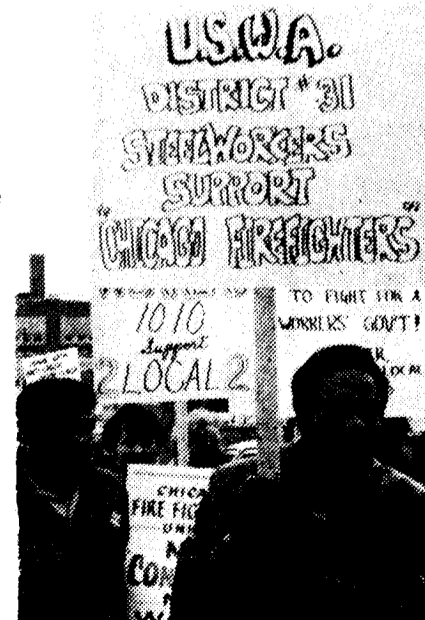 U.S.W.A.
DISTRICT #31
STEELWORKERS
SUPPORT
"CHICAGO FIREFIGHTERS"
1010
Support
2 LOCAL 2
TO FIGHT FOR A
WORKERS' GOV'T!
LOCAL
CHICA
FIRE FIG